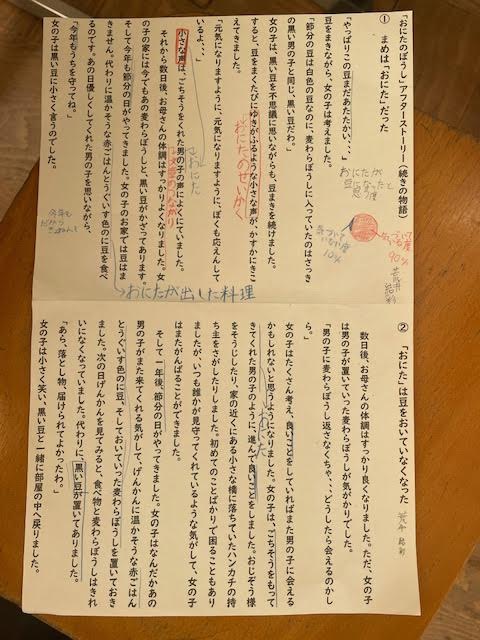 「おにたのぼうし」アフターストーリー（続きの物語）
① まめは「おにた」だった
「やっぱりこの豆まだあたたかい、、、」
豆をまきながら、女の子は考えました。
「節分の豆は白色の豆なのに、麦わらぼうしに入っていたのはさっき
の黒い男の子と同じ、黒い豆だわ。」
女の子は、黒い豆を不思議に思いながらも、豆まきを続けました。
すると、豆をまくたびにゆきがふるような小さな声が、かすかにきこ
えてきました。
「元気になりますように、元気になりますように、ぼくも応えんして
いるよ、、、」
小さな声は、ごちそうをくれた男の子の声によくにていました。
それから数日後、お母さんの体調はすっかりよくなりました。女
の子の家には今でもあの麦わらぼうしと、黒い豆がかざってあります。
そして今年も節分の日がやってきました。女の子のお家では豆はま
きません。代わりに温かそうな赤ごはんとうぐいす色のに豆を食べ
るのです。あの日優しくしてくれた男の子を思いながら、
「今年もうちを守ってね。」
女の子は黒い豆に小さく言うのでした。
おにたが
豆になったと
思う度
気づいて
いる度
90%
気づいて
いない度
10%
おにたのせいかく
おにた
おにたが出した料理
② 「おにた」は豆をおいていなくなった
数日後、お母さんの体調はすっかり良くなりました。ただ、女の子
は男の子が置いていった麦わらぼうしが気がかりでした。
「男の子に麦わらぼうし返さなくちゃ、、、どうしたら会えるのかし
ら。」
女の子はたくさん考え、良いことをしていればまた男の子に会える
かもしれないと思うようになりました。女の子は、ごちそうをもって
きてくれた男の子のように、進んで良いことをしました。おじぞう様
をそうじしたり、家の近くにある小さな橋に落ちていたハンカチの持
ち主をさがしたりしました。初めてのことばかりで困ることもあり
ましたが、いつも誰かが見守ってくれているような気がして、女の子
はまたがんばることができました。
そして一年後、節分の日がやってきました。女の子はなんだかあの
男の子がまた来てくれる気がして、げんかんに温かそうな赤ごはん
とうぐいす色のに豆、そしておいていった麦わらぼうしを置いておき
ました。次の日げんかんを見てみると、食べ物と麦わらぼうしはきれ
いになくなっていました。代わりに、黒い豆が置いてありました。
「あら、落とし物、届けられてよかったわ。」
女の子は小さく笑い、黒い豆と一緒に部屋の中へ戻りました。
おにた